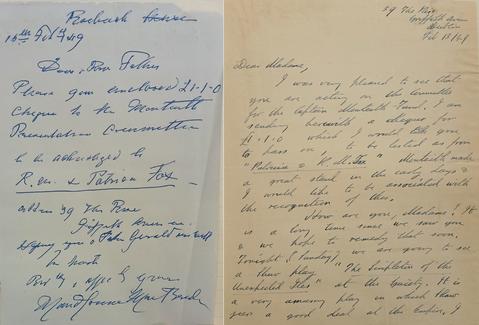 Roebuck House
15th Feb 49
Dear Father
Please give enclosed £1-1-0
Cheque to the Monteith
Presentation Committee
to be acknowledged to
R. M. & Patricia Fox
address 39 The Rise
Griffith Avenue
Hoping you & Father Gerald are well
Maud Gonne MacBride
39 The Rise
Griffith Ave
Dublin
Feb 13/49
Dear Madame,
I was very pleased to see that
you are acting on the Committee
for the Captain Monteith Fund. I am
sending herewith a cheque for
£1.1.0 which I would like you
to pass on, to be listed as from
"Patricia & R. M. Fox" Monteith made
a great stand in the early days &
I would like to be associated with
the recognition of this.
How are you, Madame? It
is a long time since we saw you
& we hope to remedy that soon.
Tonight (Sunday) we are going to see
a Shaw play "The Simpleton of the
Unexpected Isles" at the Gaiety. It is
a very amusing play in which Shaw
a good deal at the Empire, I